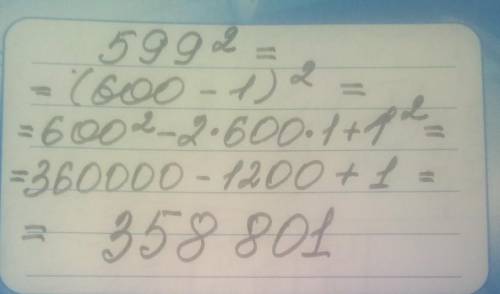 599² =
= (600 - 1)² =
= 600² - 2·600·1 + 1² =
= 360000 - 1200 + 1 =
= 358 801